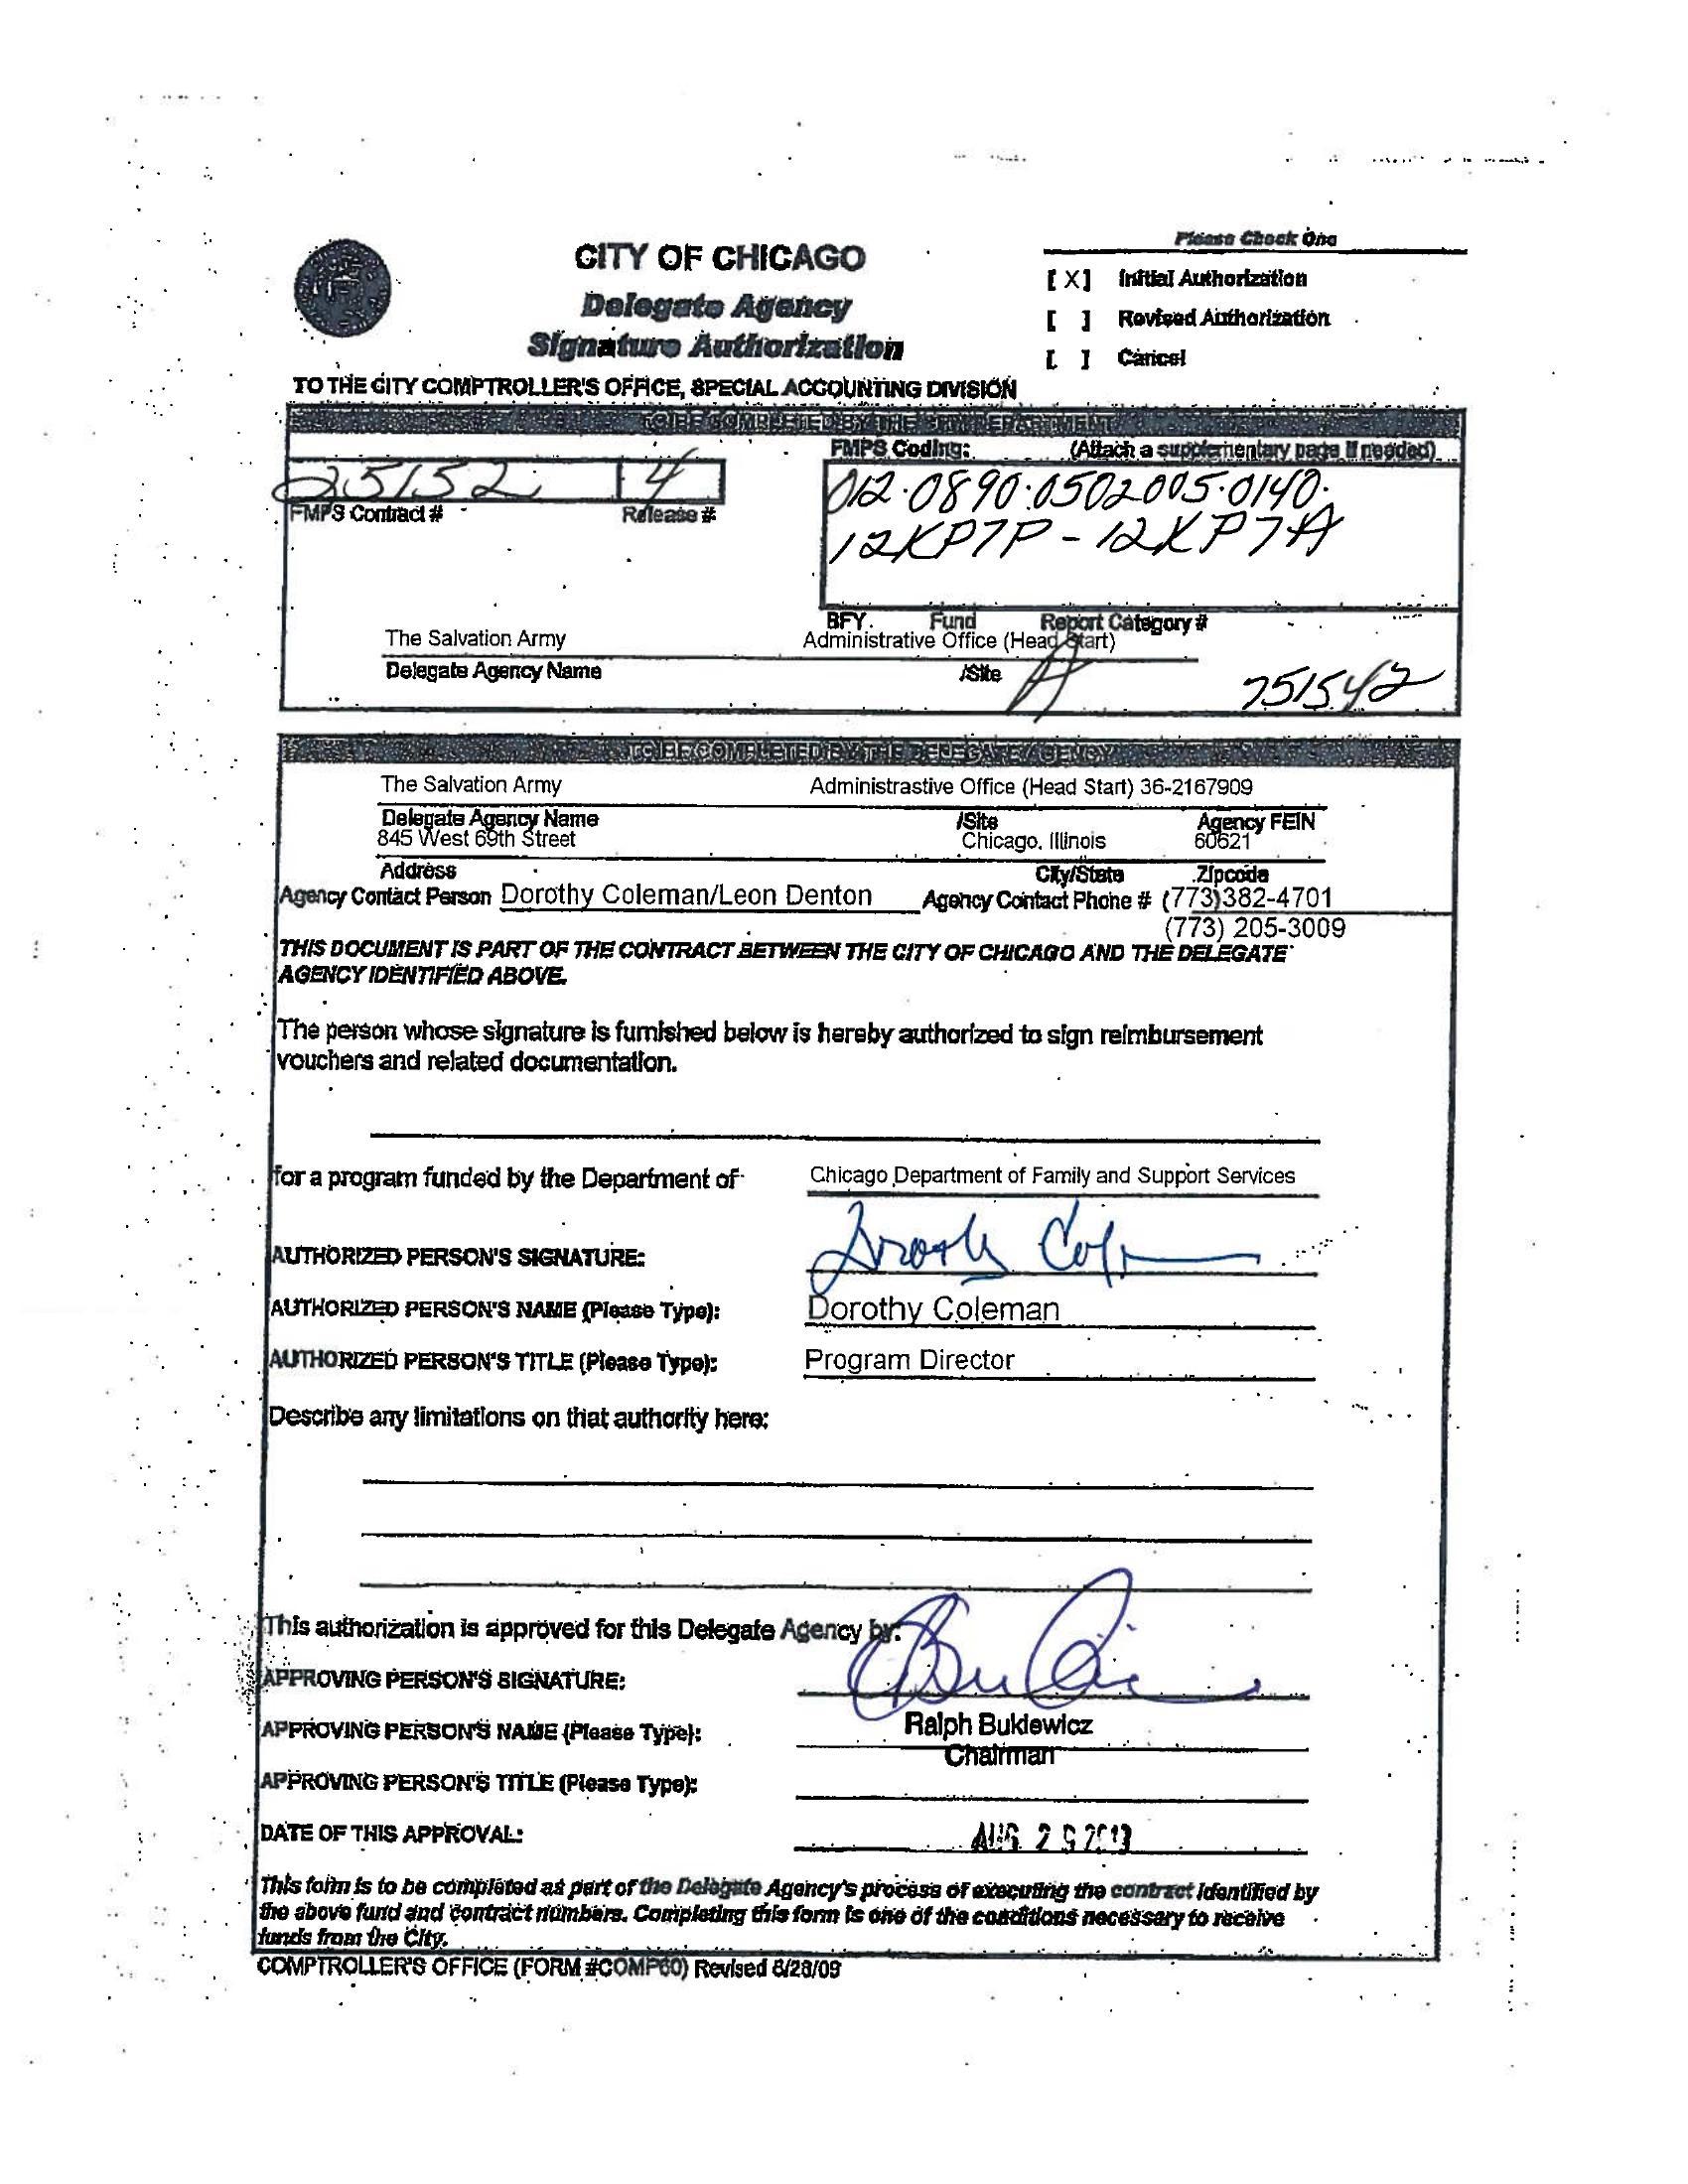 Please Check One
CITY OF CHICAGO
[X] Initial Authorization
Delegate Agency
[ ] Revised Authorization
Signature Authorization
[ ] Cancel
TO THE CITY COMPTROLLER'S OFFICE, SPECIAL ACCOUNTING DIVISION
TO BE COMPLETED BY THE CITY DEPARTMENT
FMPS Coding: (Attach a supplementary page if needed)
25152 4
012·0890·0502005·0140·
FMPS Contract # Release #
12KP7P - 12KP7A
BFY. Fund Report Category #
The Salvation Army Administrative Office (Head Start)
Delegate Agency Name /Site
751542
TO BE COMPLETED BY THE DELEGATE AGENCY
The Salvation Army Administrastive Office (Head Start) 36-2167909
Delegate Agency Name /Site Agency FEIN
845 West 69th Street Chicago, Illinois 60621
Address City/State Zipcode
Agency Contact Person Dorothy Coleman/Leon Denton Agency Contact Phone # (773)382-4701
(773) 205-3009
THIS DOCUMENT IS PART OF THE CONTRACT BETWEEN THE CITY OF CHICAGO AND THE DELEGATE
AGENCY IDENTIFIED ABOVE.
The person whose signature is furnished below is hereby authorized to sign reimbursement
vouchers and related documentation.
for a program funded by the Department of Chicago Department of Family and Support Services
AUTHORIZED PERSON'S SIGNATURE:
AUTHORIZED PERSON'S NAME (Please Type): Dorothy Coleman
AUTHORIZED PERSON'S TITLE (Please Type): Program Director
Describe any limitations on that authority here:
This authorization is approved for this Delegate Agency by:
APPROVING PERSON'S SIGNATURE:
APPROVING PERSON'S NAME (Please Type): Ralph Bukiewicz
Chairman
APPROVING PERSON'S TITLE (Please Type):
DATE OF THIS APPROVAL: AUG 2
This form is to be completed as part of the Delegate Agency's process of executing the contract identified by
the above fund and contract numbers. Completing this form is one of the conditions necessary to receive
funds from the City.
COMPTROLLER'S OFFICE (FORM #COMP60) Revised 8/28/09